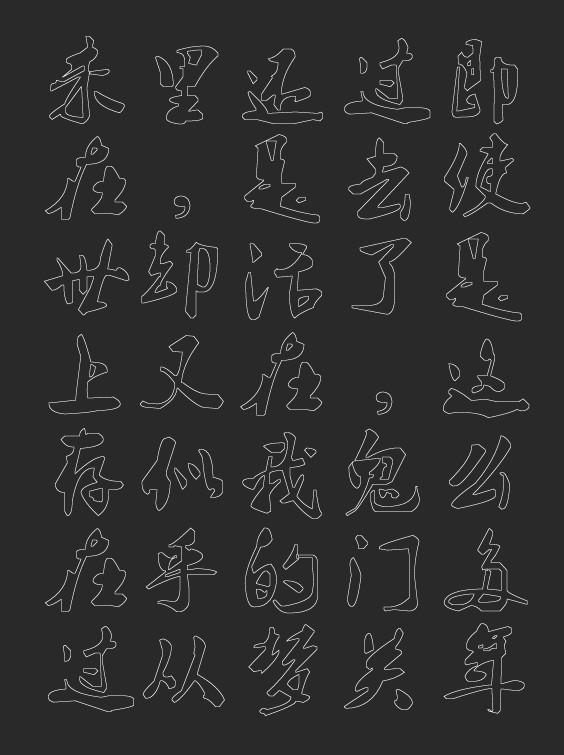 即使是这么多年
过去了，鬼门关
还是活在我的梦
里，却又似乎从
未在世上存在过